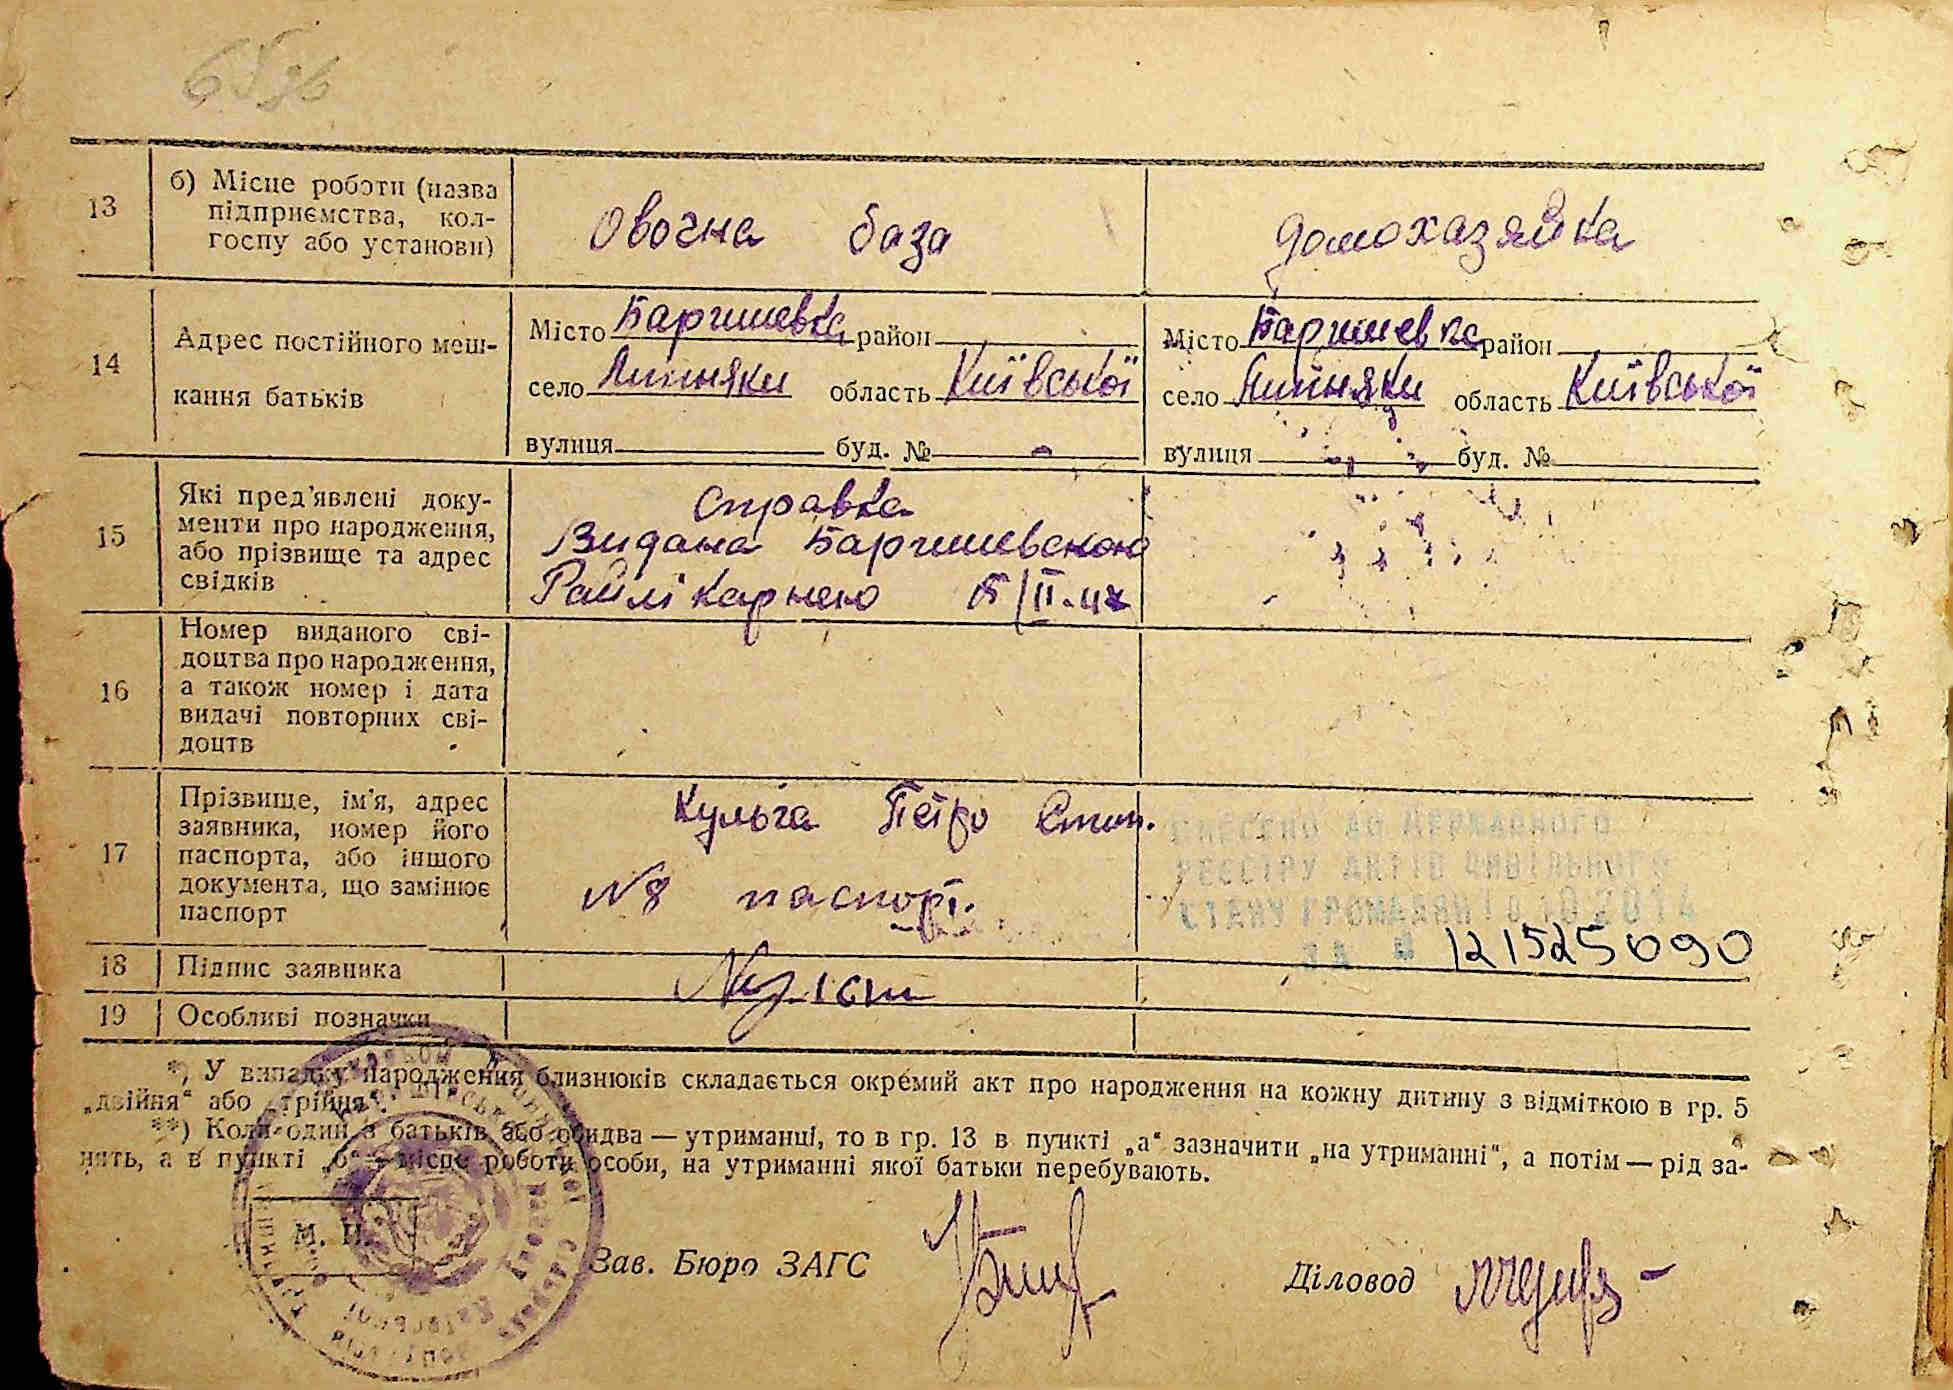 13
б) Місце роботи (назва
підприємства, кол-
госпу або установи)
Овочна база
домохазяйка
14
Адрес постійного меш-
кання батьків
Місто Баришевка район
село Липняки область Київської
вулиця буд. № -
Місто Баришевка район
село Липняки область Київської
вулиця буд. №
15
Які пред'явлені доку-
менти про народження,
або прізвище та адрес
свідків
Справка
Видана Баришевскою
Райлікарнею
16
Номер виданого сві-
доцтва про народження,
а також номер і дата
видачі повторних сві-
доцтв
17
Прізвище, ім'я, адрес
заявника, номер його
паспорта, або іншого
документа, що замінює
паспорт
Кульга Петро Степ.
№8 паспорт.
ВНЕСЕНО ДО ДЕРЖАВНОГО
РЕЄСТРУ АКТІВ ЦИВІЛЬНОГО
СТАНУ ГРОМАДЯН 10 2014
ЗА № 121525090
18
Підпис заявника
19
Особливі позначки
*) У випадку народження близнюків складається окремий акт про народження на кожну дитину з відміткою в гр. 5
„двійня“ або „трійня“.
**) Коли один з батьків або обидва — утриманці, то в гр. 13 в пункті „а“ зазначити „на утриманні“, а потім — рід за-
нять, а в пункті „б“ — місце роботи особи, на утриманні якої батьки перебувають.
М. П.
Зав. Бюро ЗАГС
Діловод